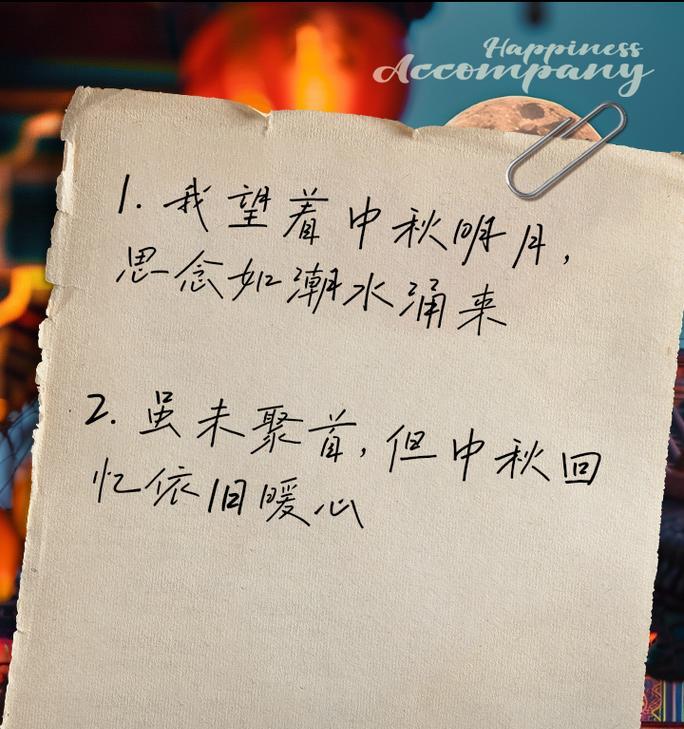 Happiness
Accompany
1. 我望着中秋明月,
思念如潮水涌来
2. 虽未聚首,但中秋回
忆依旧暖心